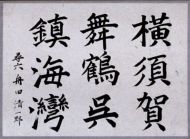 横須賀
舞鶴呉
鎮海灣
尋六舟田清一郎